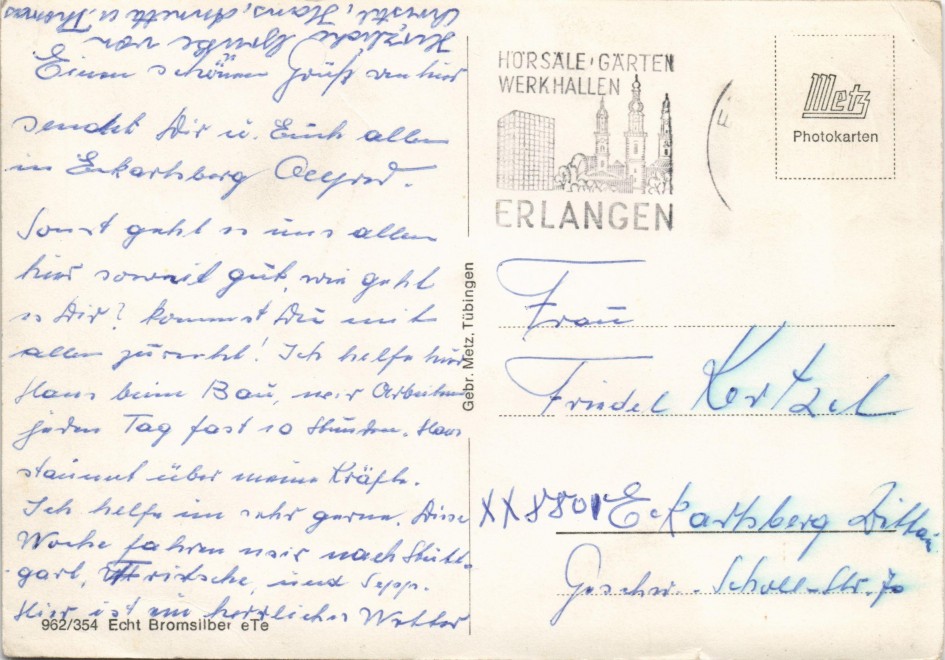 Einen schönen Gruß von hier
sendet Dir u. Euch allen
in Eckartsberg
Sonst geht es uns allen
hier soweit gut, wie geht
es Dir? kommst Du mit
allen zurecht! Ich helfe hier
Hans beim Bau, wir Arbeiten
jeden Tag fast 10 Stunden. Hans
staunnt über meine Kräfte.
Ich helfe im sehr gerne. Diese
Woche fahren wir nach Stutt-
gart, Fritsche, und Sepp.
Hier ist ein herrliches Wetter
Herzliche Grüße von
Christl, Hans, Annett u. Thomas
962/354 Echt Bromsilber eTe
Gebr. Metz, Tübingen
HÖRSÄLE·GÄRTEN
WERKHALLEN
ERLANGEN
Metz
Photokarten
Frau
Friedel Kertzel
XX 8801 Eckartsberg Zittau
Geschw.-Scholl-Str. 70